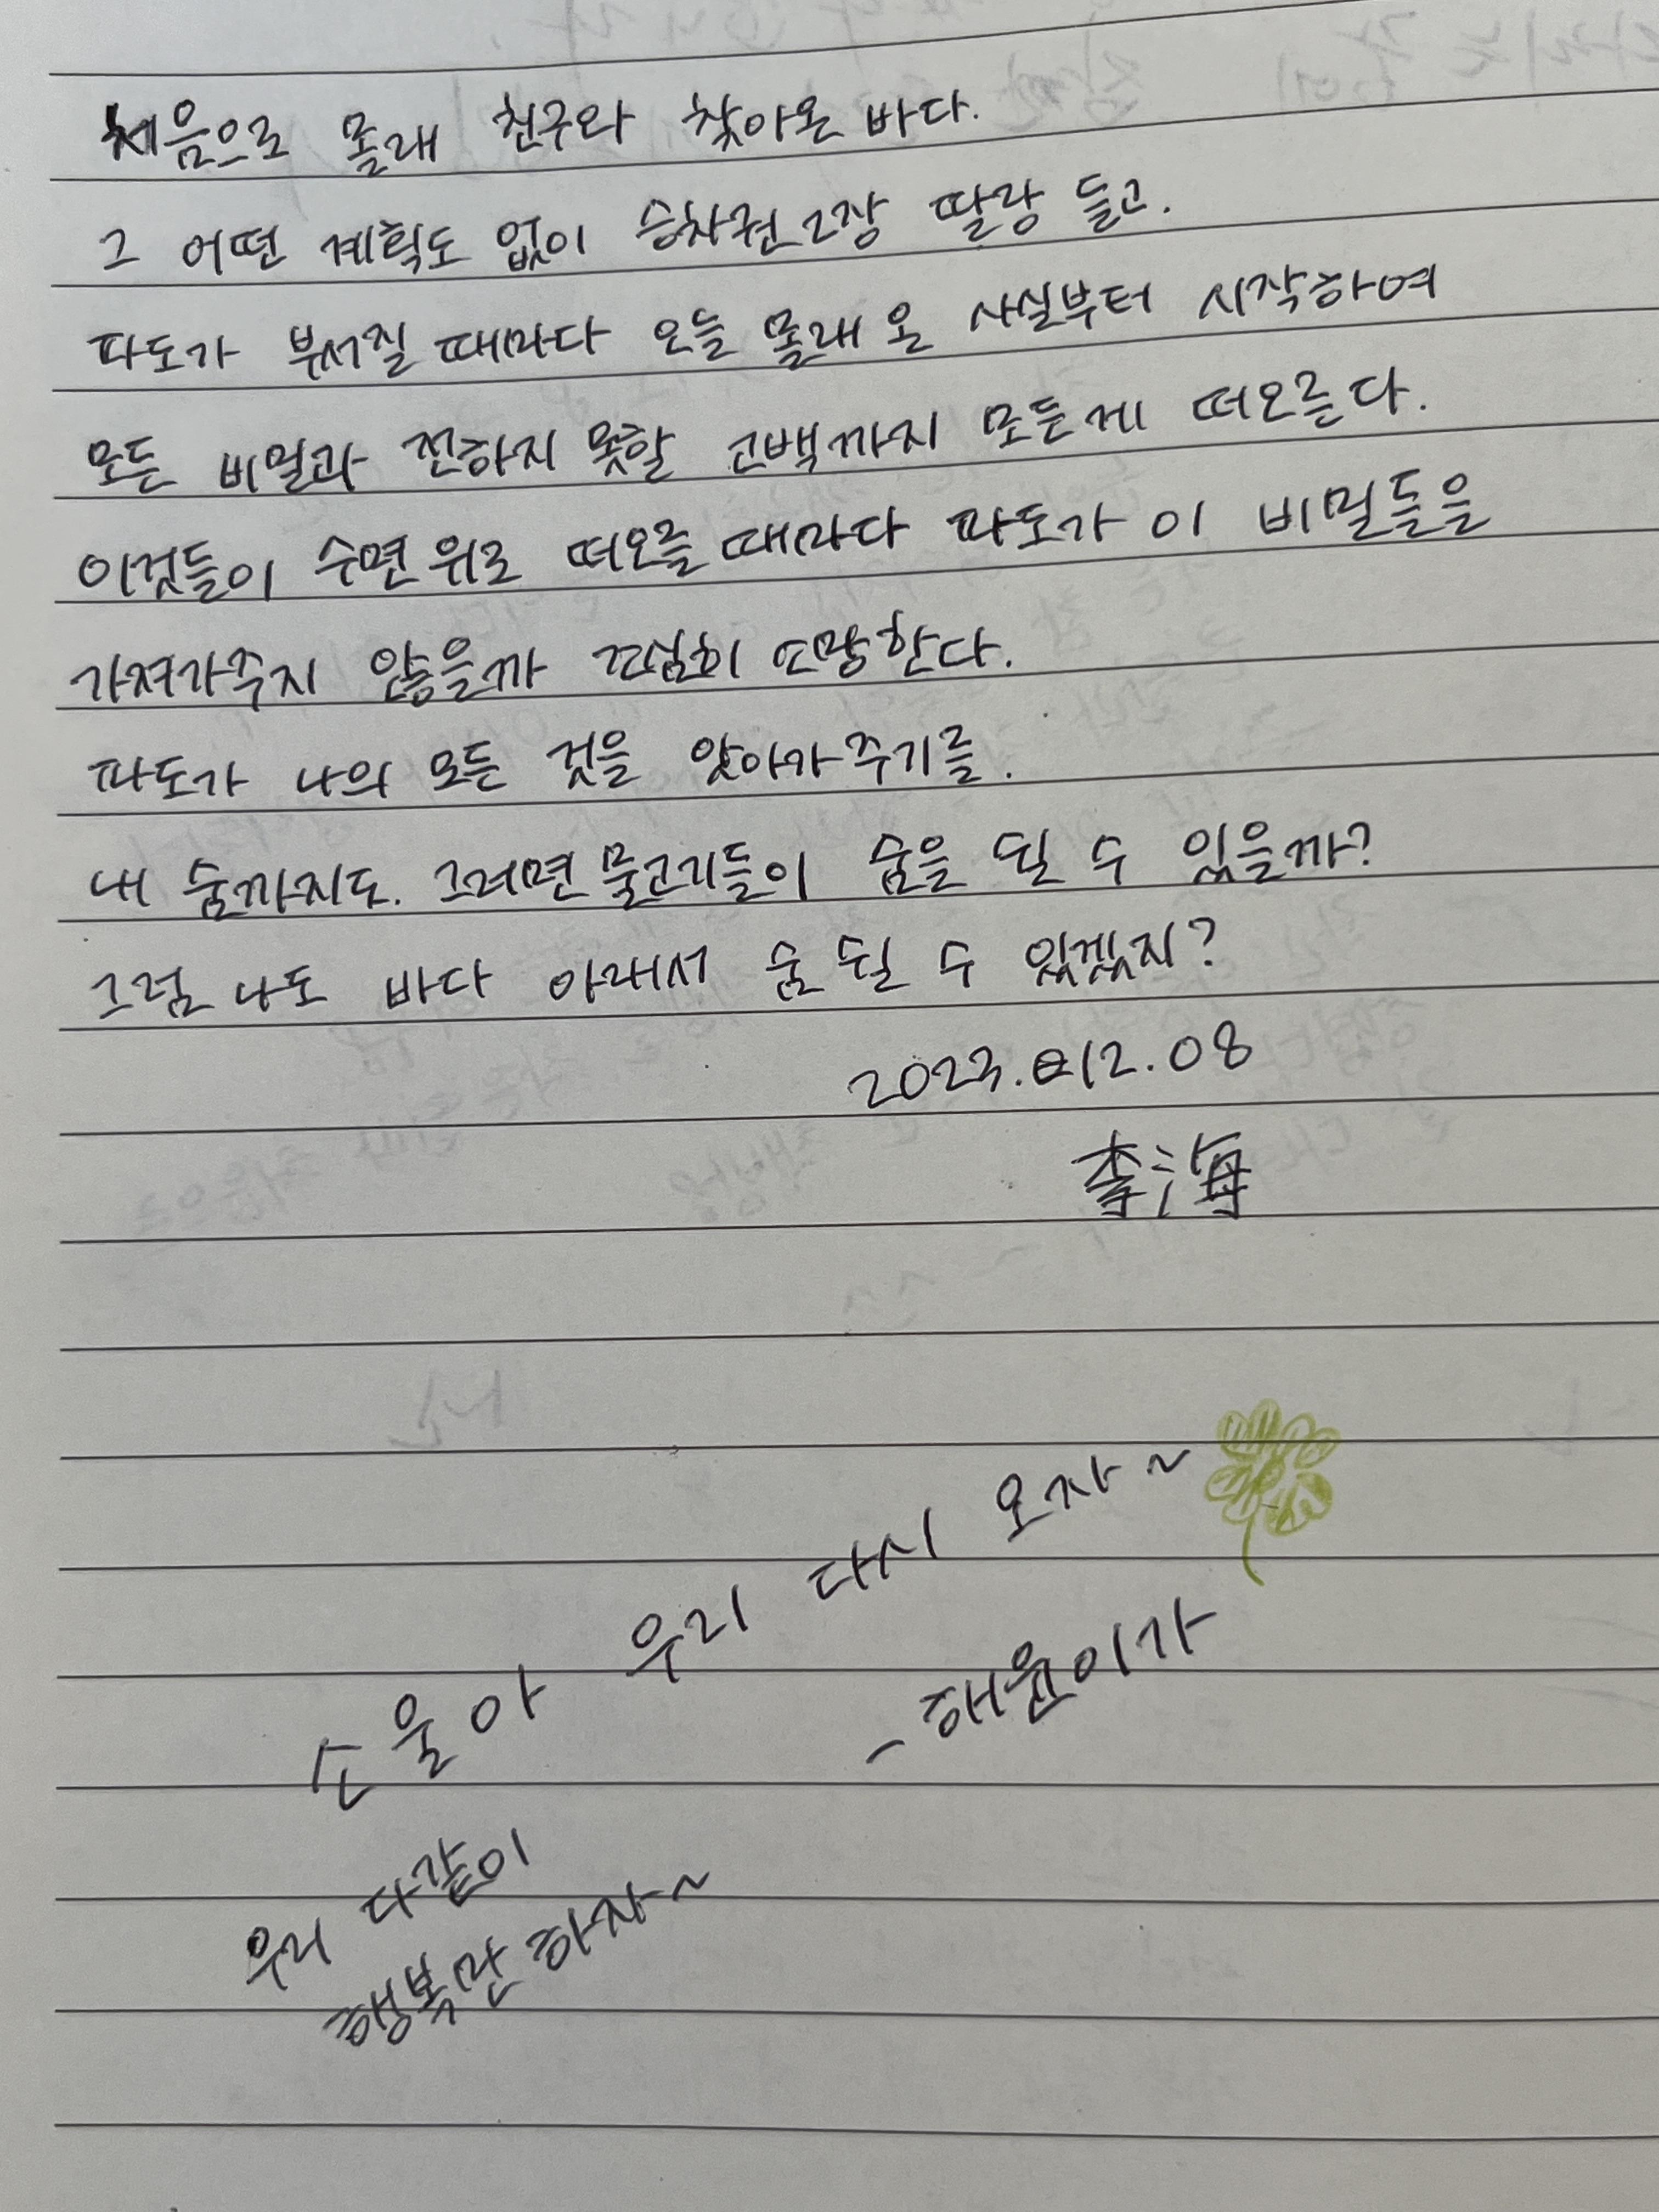 처음으로 몰래 친구와 찾아온 바다.
그 어떤 계획도 없이 승차권 2장 딸랑 들고.
파도가 부서질 때마다 오늘 몰래 온 사실부터 시작하여
모든 비밀과 전하지 못할 고백까지 모든게 떠오른다.
이것들이 수면 위로 떠오를 때마다 파도가 이 비밀들을
가져가주지 않을까 조심히 소망한다.
파도가 나의 모든 것을 앗아가 주기를.
내 숨까지도. 그러면 물고기들이 숨을 쉴 수 있을까?
그럼 나도 바다 아래서 숨 쉴 수 있겠지?
2023.12.08
李海
우리 다시 오자~
-해원이가
우리 다같이
행복만 하자~